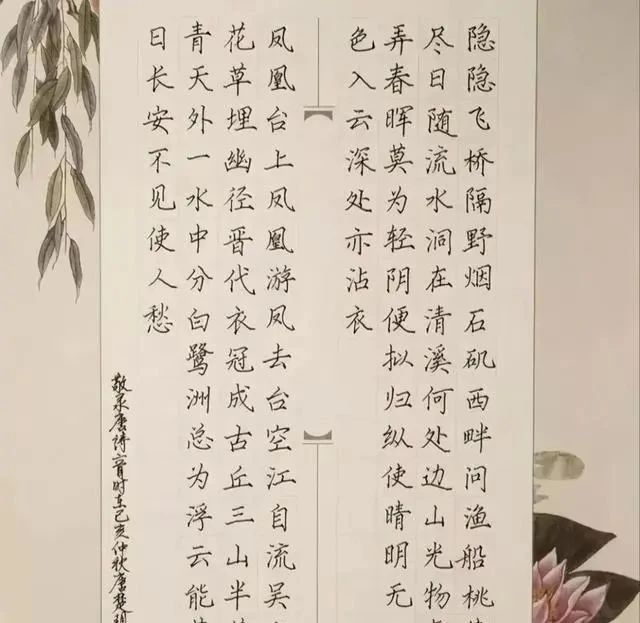 隐隐飞桥隔野烟石矶西畔问渔船桃
尽日随流水洞在清溪何处边山光物
弄春晖莫为轻阴便拟归纵使晴明无
色入云深处亦沾衣
凤凰台上凤凰游凤去台空江自流吴
花草埋幽径晋代衣冠成古丘三山半
青天外一水中分白鹭洲总为浮云能
日长安不见使人愁
敬录唐诗二首时在己亥仲秋唐楚